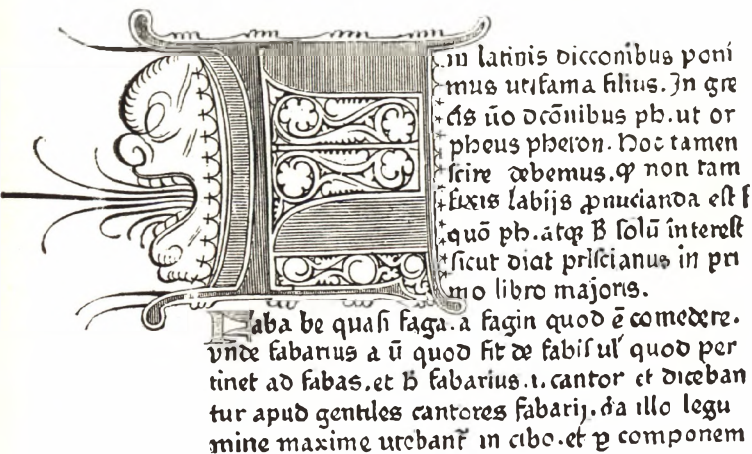 In latinis dicconibus poni
mus ut.fama filius. In gre
cis ūo dcōnibus ph. ut or
pheus pheron. Hoc tamen
scire debemus. ꝙ non tam
fixis labijs ꝓnuncianda est f
quō ph. atqꝫ solū interest
sicut dicit priscianus in pri
mo libro majoris.
Faba be quasi faga. a fagin quod ē comedere.
vnde fabarius a ū quod fit de fabis ul' quod per
tinet ad fabas. et h fabarius .i. cantor et diceban
tur apud gentiles cantores fabarij. illo legu
mine maxime utebant~ in cibo. et ꝑ componem